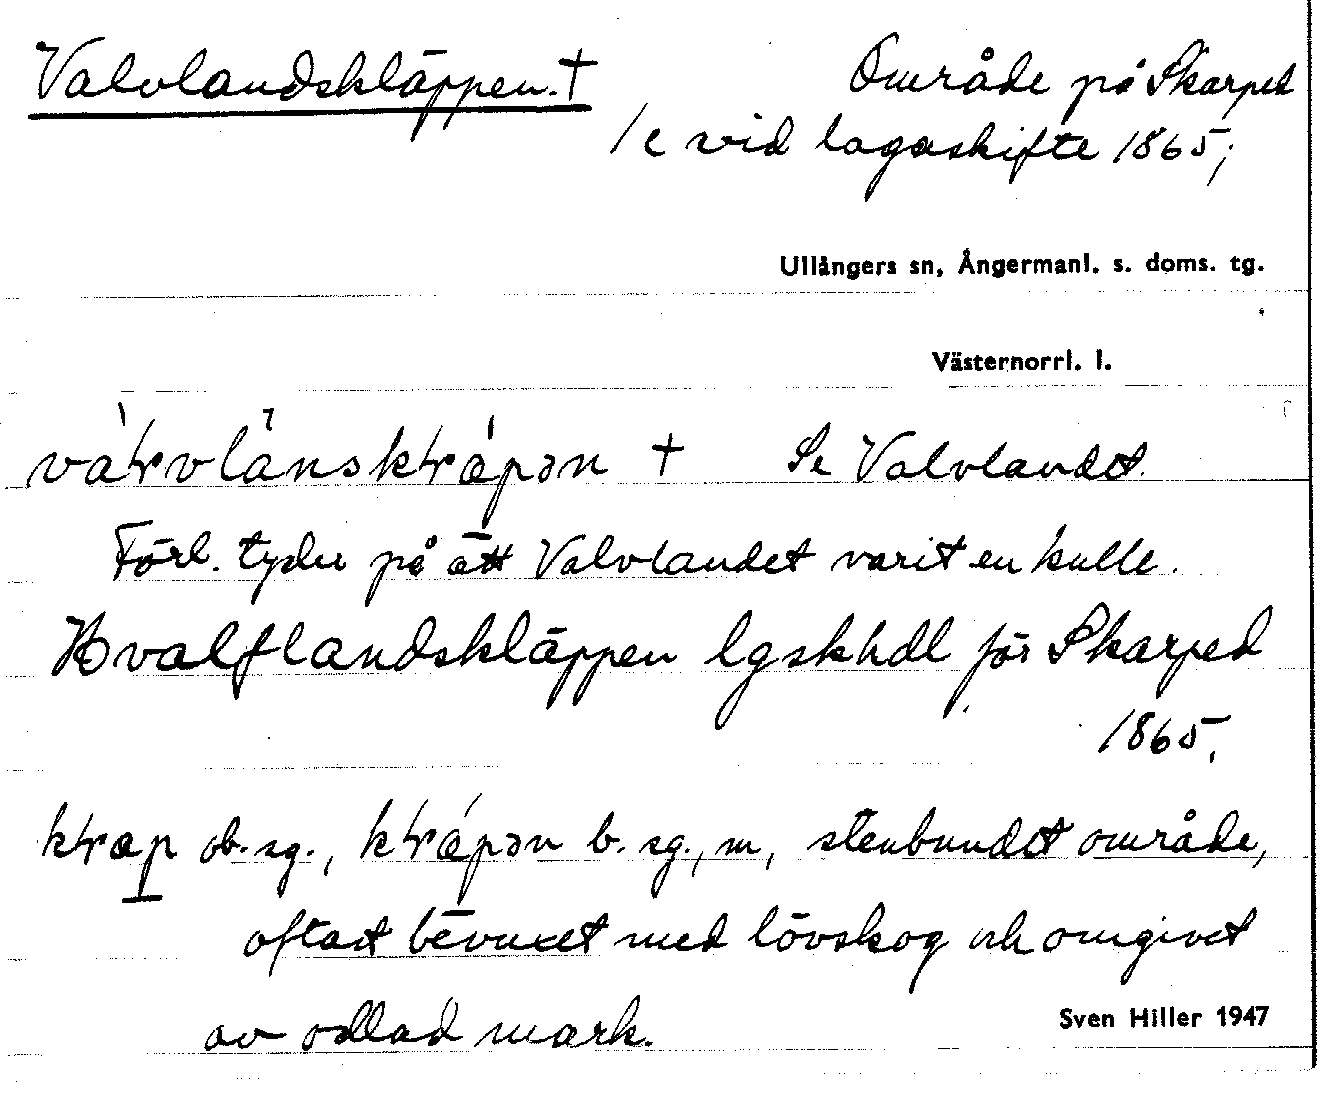 Valvlandskläppen. † Område på Skarped
1c vid lagaskifte 1865;
Ullångers sn, Ångermanl. s. doms. tg.
Västernorrl. l.
† Se Valvlandet.
Förl. tyder på att Valvlandet varit en kulle.
Hvalflandskläppen lgskhdl för Skarped
1865.
ob. sg., b. sg., m, stenbundet område,
oftast bevuxet med lövskog och omgivet
av odlad mark.
Sven Hiller 1947